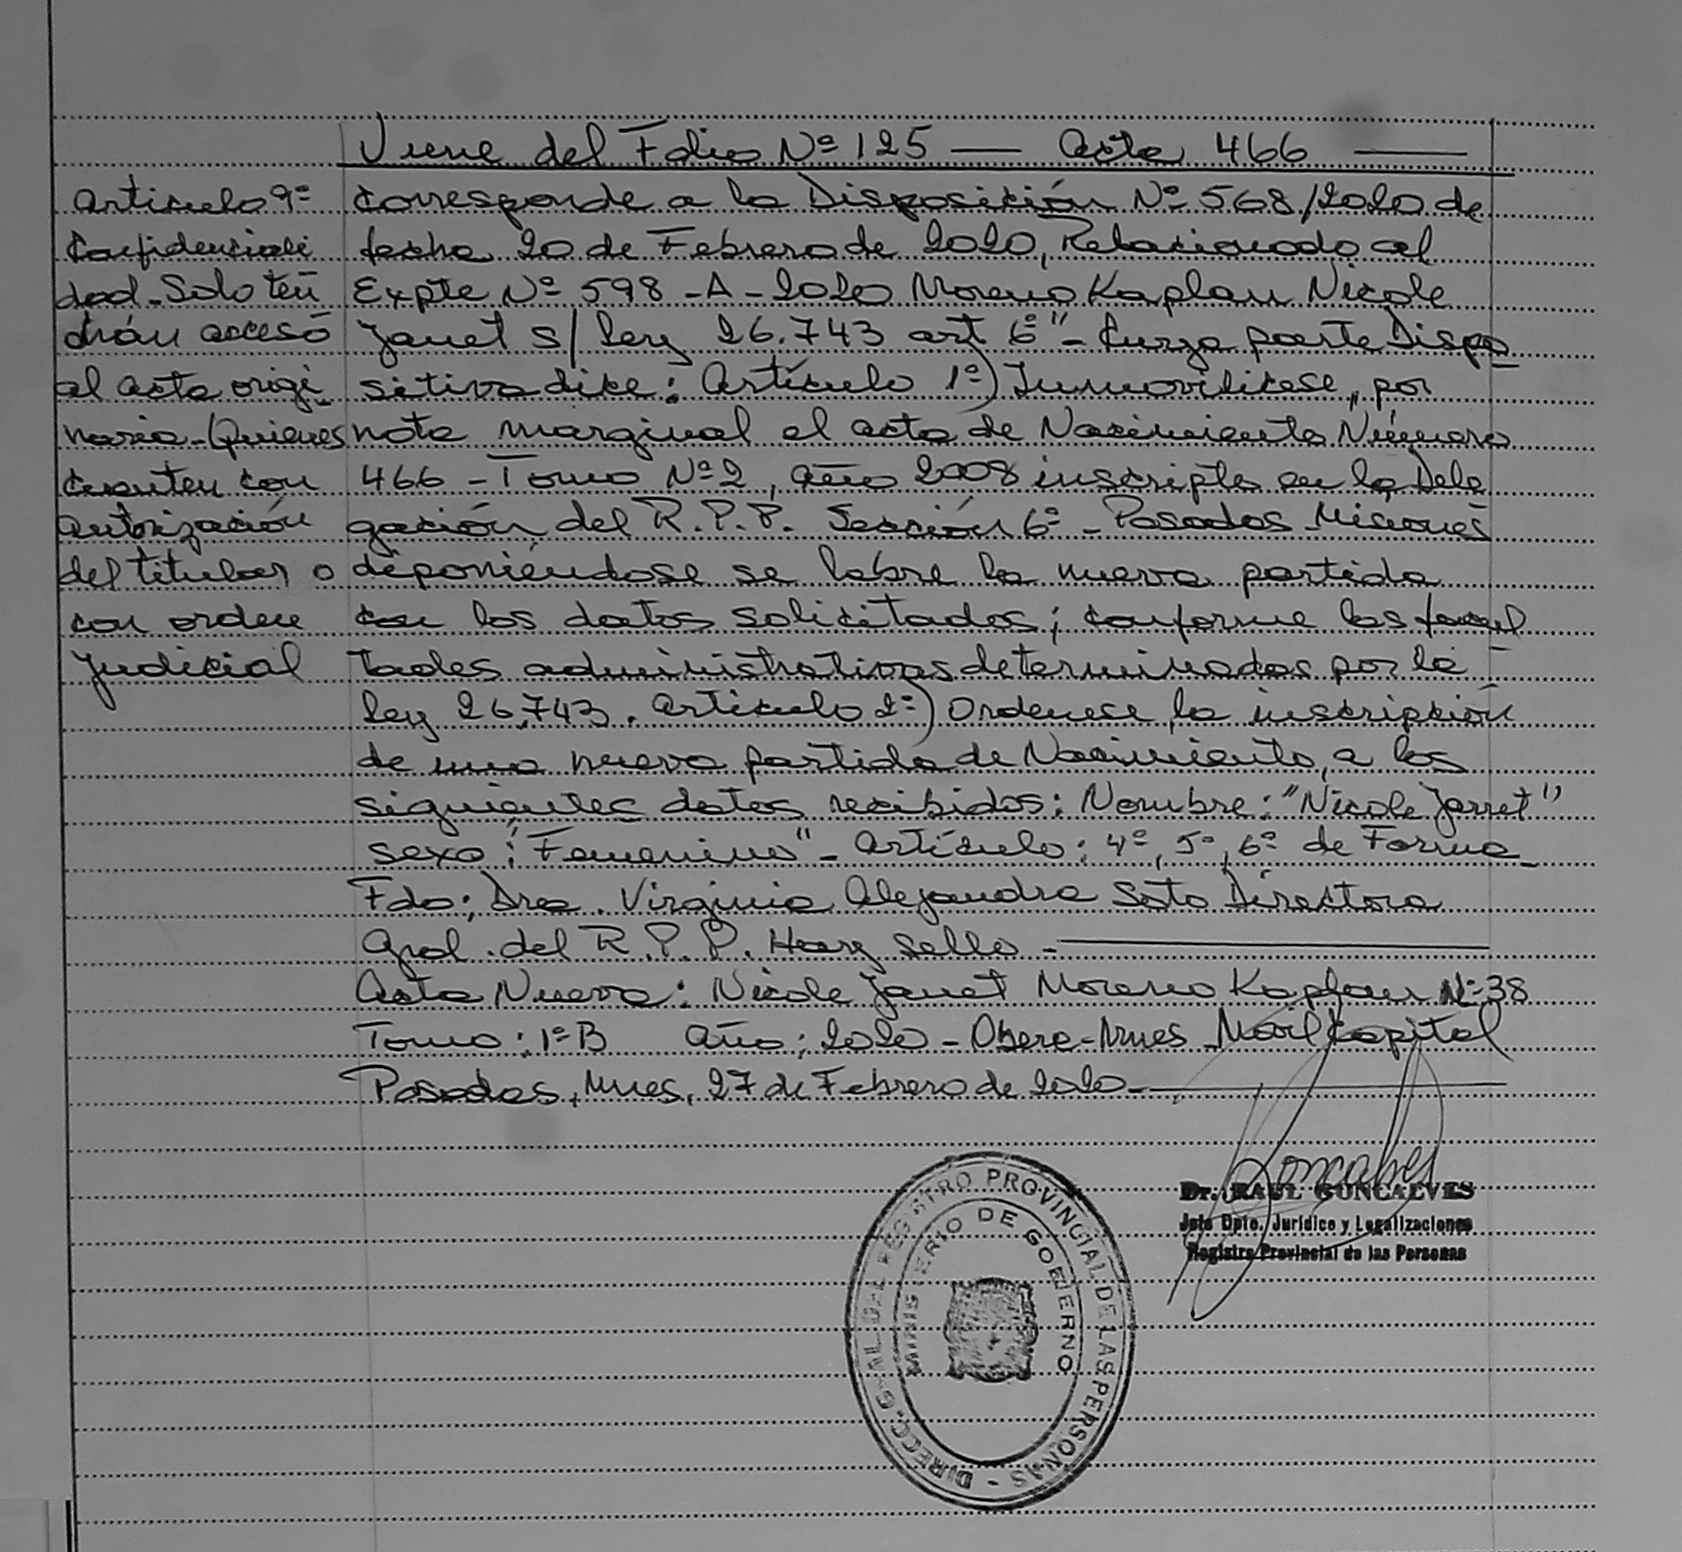 Viene del Folio Nº 125 — Acta 466 —
Articulo 9º
Confidenciali
dad. Solo ten
drán acceso
al acta origi
naria - Quienes
cuenten con
autorización
del titular o
con orden
judicial
Corresponde a la Disposición Nº 568/2020 de
fecha 20 de Febrero de 2020, Relacionado al
Expte Nº 598 - A - 2020 Moreno Kaplan Nicole
Janet s/ Ley 26.743 art 6º" - Cuya parte Dispo
sitiva dice: Artículo 1º) Inmovilicese, por
nota marginal el acta de Nacimiento Número
466 - Tomo Nº 2, año 2008 inscripta en la Dele
gación del R.P.P. Sección 6º - Posadas Misiones
deponiéndose se labre la nueva partida
con los datos solicitados; conforme las facul
tades administrativas determinadas por la
ley 26.743. Articulo 2º) Ordenese la inscripción
de una nueva partida de Nacimiento, a los
siguientes datos recibidos: Nombre: "Nicole Janet"
sexo: "Femenino" - Artículo: 4º, 5º, 6º de Forma -
Fdo: Dra. Virginia Alejandra Soto Directora
Gral. del R.P.P. Hay sello -
Acta Nueva: Nicole Janet Moreno Kaplan Nº 38
Tomo: 1º B Año: 2020 - Obera - Mnes
Posadas, Mnes, 27 de Febrero de 2020 -
Dr. RAUL GONCALVES
Jefe Dpto. Jurídico y Legalizaciones
Registro Provincial de las Personas
DIRECC. GRAL. DEL REGISTRO PROVINCIAL DE LAS PERSONAS -
MINISTERIO DE GOBIERNO